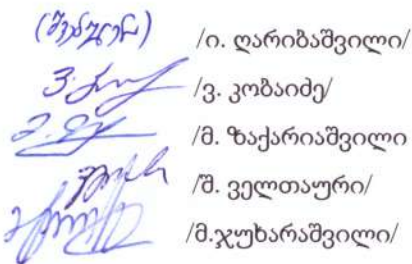 (შვებულება) /ი. ღარიბაშვილი/
/ვ. კობაიძე/
/მ. ზაქარიაშვილი
/შ. ველთაური/
/მ.ჯუხარაშვილი/